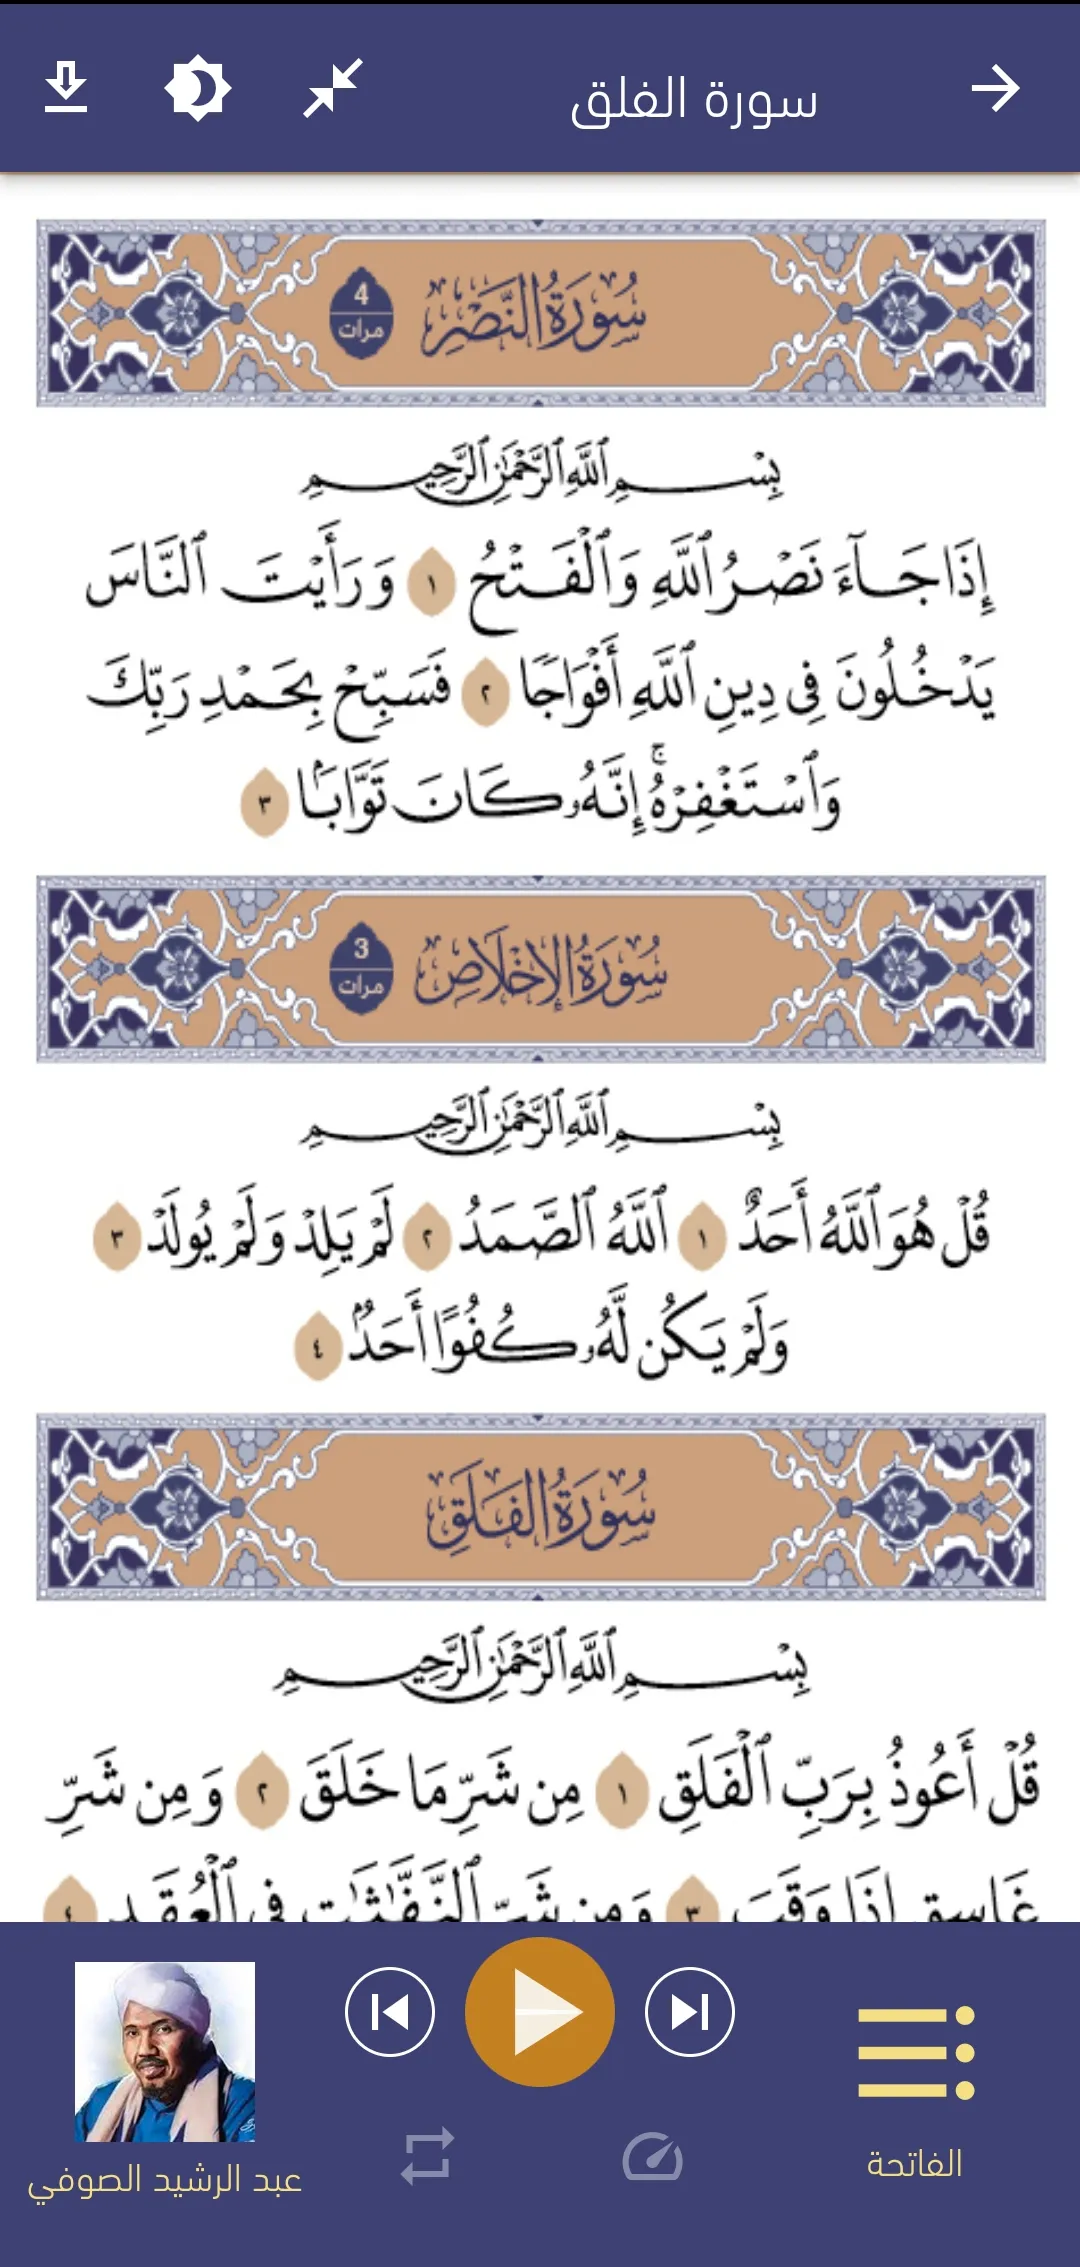 سورة الفلق
سُورَةُ النَّصْرِ
4
مرات
بِسْمِ ٱللَّهِ ٱلرَّحْمَٰنِ ٱلرَّحِيمِ
إِذَا جَآءَ نَصْرُ ٱللَّهِ وَٱلْفَتْحُ ١ وَرَأَيْتَ ٱلنَّاسَ
يَدْخُلُونَ فِى دِينِ ٱللَّهِ أَفْوَاجًا ٢ فَسَبِّحْ بِحَمْدِ رَبِّكَ
وَٱسْتَغْفِرْهُ ۚ إِنَّهُۥ كَانَ تَوَّابَۢا ٣
سُورَةُ الإِخْلَاصِ
3
مرات
بِسْمِ ٱللَّهِ ٱلرَّحْمَٰنِ ٱلرَّحِيمِ
قُلْ هُوَ ٱللَّهُ أَحَدٌ ١ ٱللَّهُ ٱلصَّمَدُ ٢ لَمْ يَلِدْ وَلَمْ يُولَدْ ٣
وَلَمْ يَكُن لَّهُۥ كُفُوًا أَحَدُۢ ٤
سُورَةُ الفَلَقِ
بِسْمِ ٱللَّهِ ٱلرَّحْمَٰنِ ٱلرَّحِيمِ
قُلْ أَعُوذُ بِرَبِّ ٱلْفَلَقِ ١ مِن شَرِّ مَا خَلَقَ ٢ وَمِن شَرِّ
غَاسِقٍ إِذَا وَقَبَ ٣ وَمِن شَرِّ ٱلنَّفَّٰثَٰتِ فِى ٱلْعُقَدِ ٤
الفاتحة
عبد الرشيد الصوفي